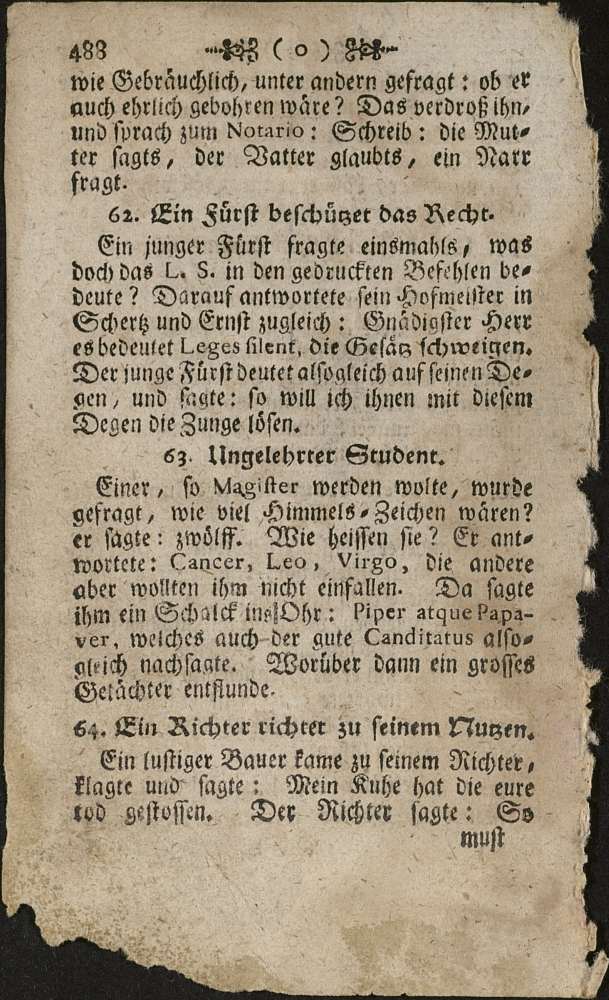 488 ( o )
wie Gebräuchlich, unter andern gefragt: ob er
auch ehrlich gebohren wäre? Das verdroß ihn,
und sprach zum Notario: Schreib: die Mut-
ter sagts, der Vatter glaubts, ein Narr
fragt.
62. Ein Fürst beschützet das Recht.
Ein junger Fürst fragte einsmahls, was
doch das L. S. in den gedruckten Befehlen be-
deute? Darauf antwortete sein Hofmeister in
Schertz und Ernst zugleich: Gnädigster Herr
es bedeutet Leges silent, die Gesätz schweigen.
Der junge Fürst deutet alsogleich auf seinen De-
gen, und sagte: so will ich ihnen mit diesem
Degen die Zunge lösen.
63. Ungelehrter Student.
Einer, so Magister werden wolte, wurde
gefragt, wie viel Himmels-Zeichen wären?
er sagte: zwölff. Wie heissen sie? Er ant-
wortete: Cancer, Leo, Virgo, die andere
aber wollten ihm nicht einfallen. Da sagte
ihm ein Schalck ins Ohr: Piper atque Papa-
ver, welches auch der gute Canditatus also-
gleich nachsagte. Worüber dann ein grosses
Gelächter entstunde.
64. Ein Richter richtet zu seinem Nutzen.
Ein lustiger Bauer kame zu seinem Richter,
klagte und sagte: Mein Kuhe hat die eure
tod gestossen. Der Richter sagte: So
must